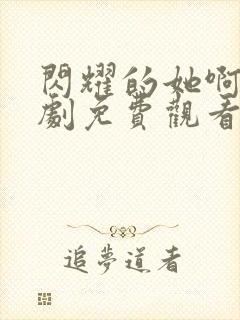 閃耀的她啊
劇免費觀看
追夢道者